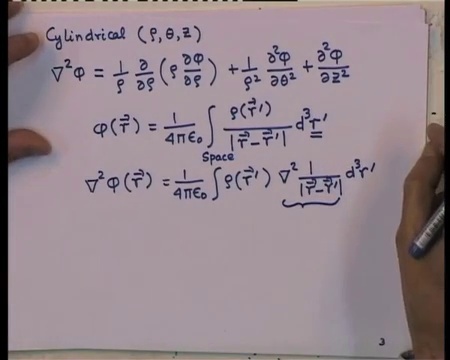 Cylindrical (ρ, θ, z)
∇²φ = 1/ρ ∂/∂ρ (ρ ∂φ/∂ρ) + 1/ρ² ∂²φ/∂θ² + ∂²φ/∂z²
φ(r⃗) = 1/4πε₀ ∫ ρ(r⃗′)/|r⃗−r⃗′| d³r′
Space
∇²φ(r⃗) = 1/4πε₀ ∫ρ(r⃗′) ∇² 1/|r⃗−r⃗′| d³r′
3